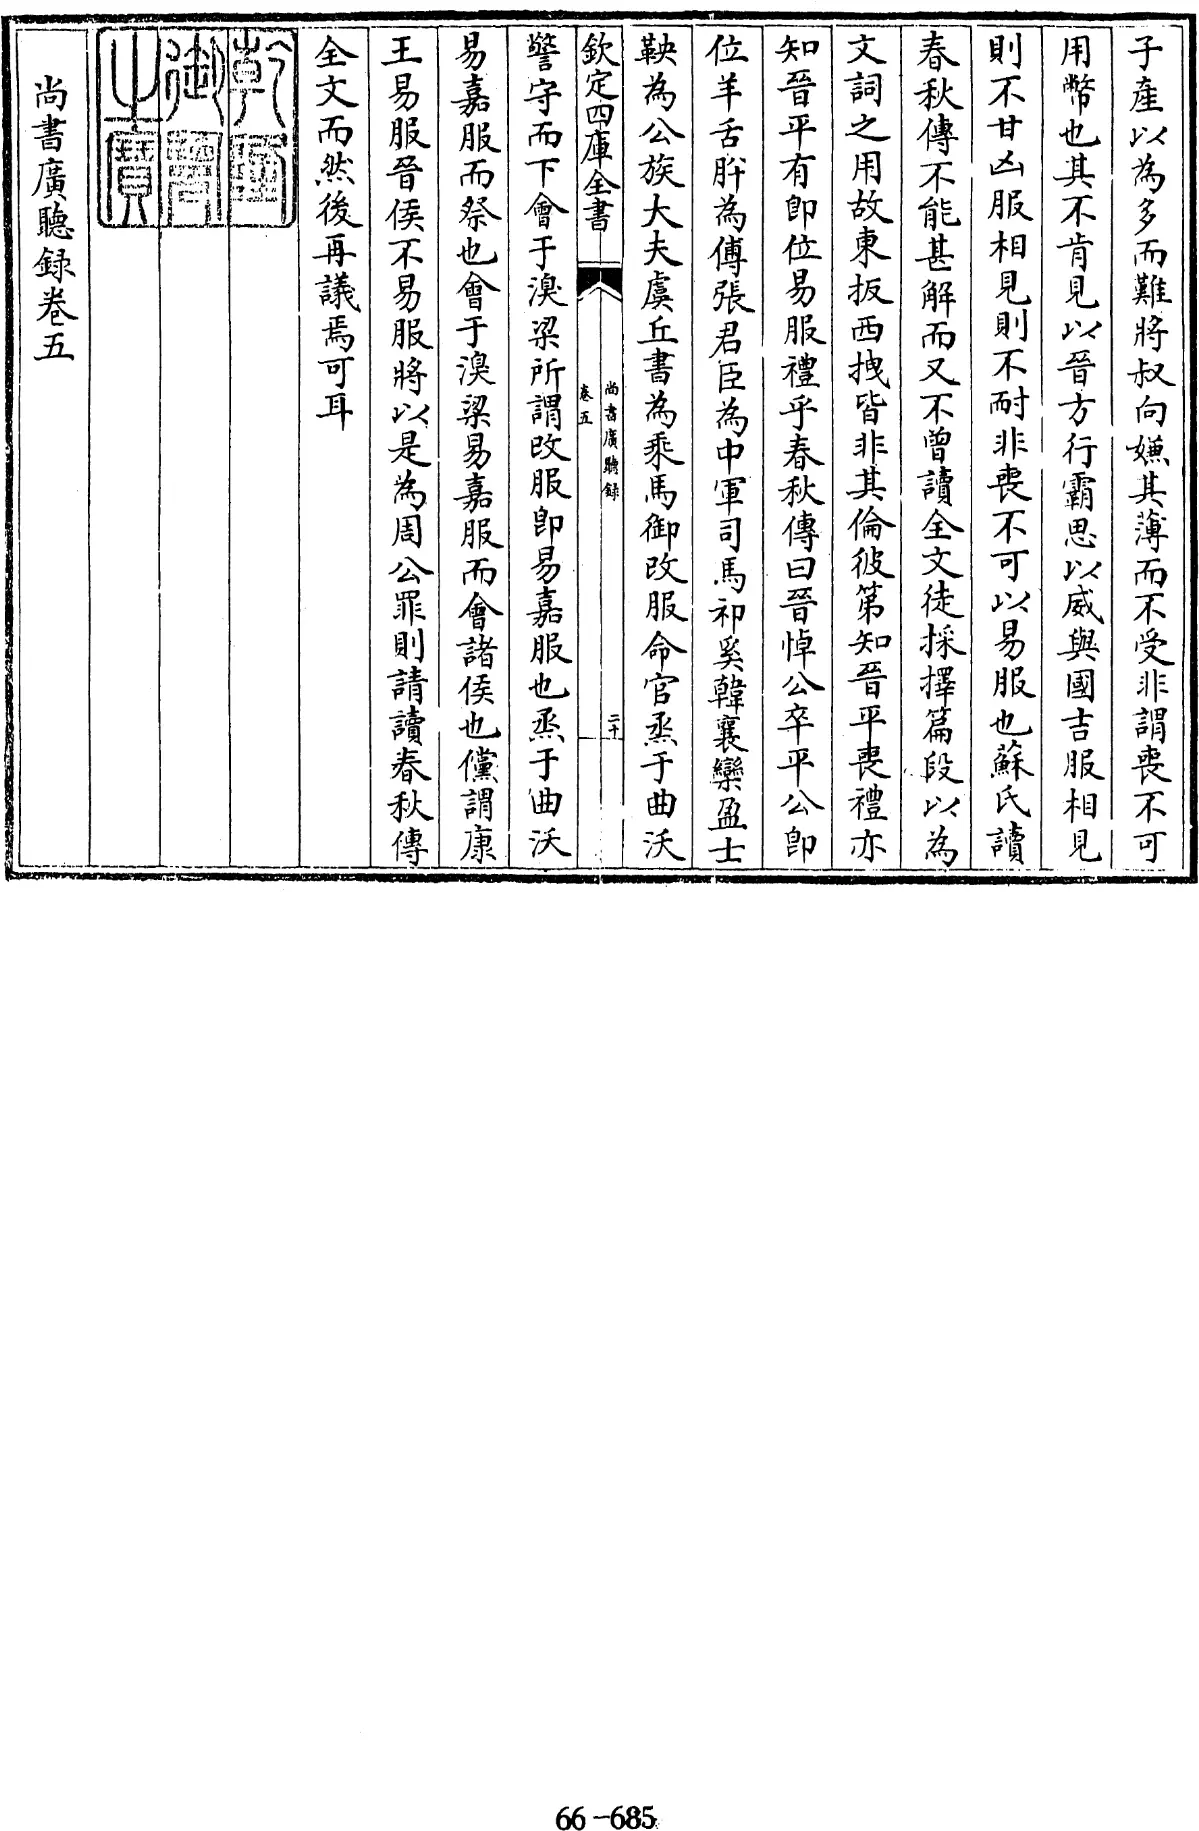 子産以為多而難將叔向嫌其薄而不受非謂喪不可
用幣也其不肯見以晉方行霸思以威與國吉服相見
則不甘凶服相見則不耐非喪不可以易服也蘇氏讀
春秋傳不能甚解而又不曾讀全文徒採擇篇段以為
文詞之用故東扳西拽皆非其倫彼第知晉平喪禮亦
知晉平有卽位易服禮乎春秋傳曰晉悼公卒平公卽
位羊舌肸為傅張君臣為中軍司馬祁奚韓襄欒盈士
鞅為公族大夫虞丘書為乘馬御改服命官烝于曲沃
欽定四庫全書
尚書廣聽録
卷五
二十
警守而下會于溴梁所謂改服卽易嘉服也烝于曲沃
易嘉服而祭也會于溴梁易嘉服而會諸侯也儻謂康
王易服晉侯不易服將以是為周公罪則請讀春秋傳
全文而然後再議焉可耳
乾隆御覽之寶
尚書廣聽録卷五
66-685